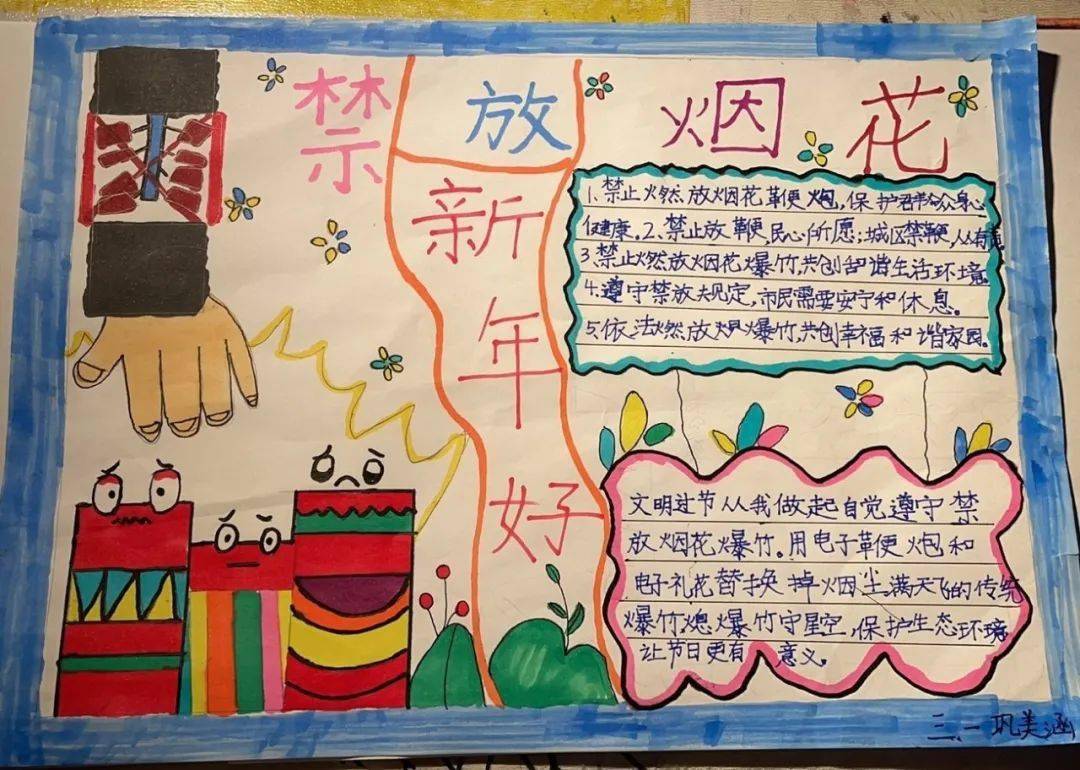 禁放烟花
新年好
1.禁止燃放烟花鞭炮,保护群众身心
健康。2.禁止放鞭,民心所愿;城区禁鞭,从有
3.禁止燃放烟花爆竹,共创和谐生活环境。
4.遵守禁放规定,市民需要安宁和休息。
5.依法燃放爆竹,共创幸福和谐家园。
文明过节从我做起自觉遵守禁
放烟花爆竹。用电子鞭炮和
电子礼花替换掉烟尘满天飞的传统
爆竹熄爆竹守星空,保护生态环境
让节日更有意义。
三.一巩美涵